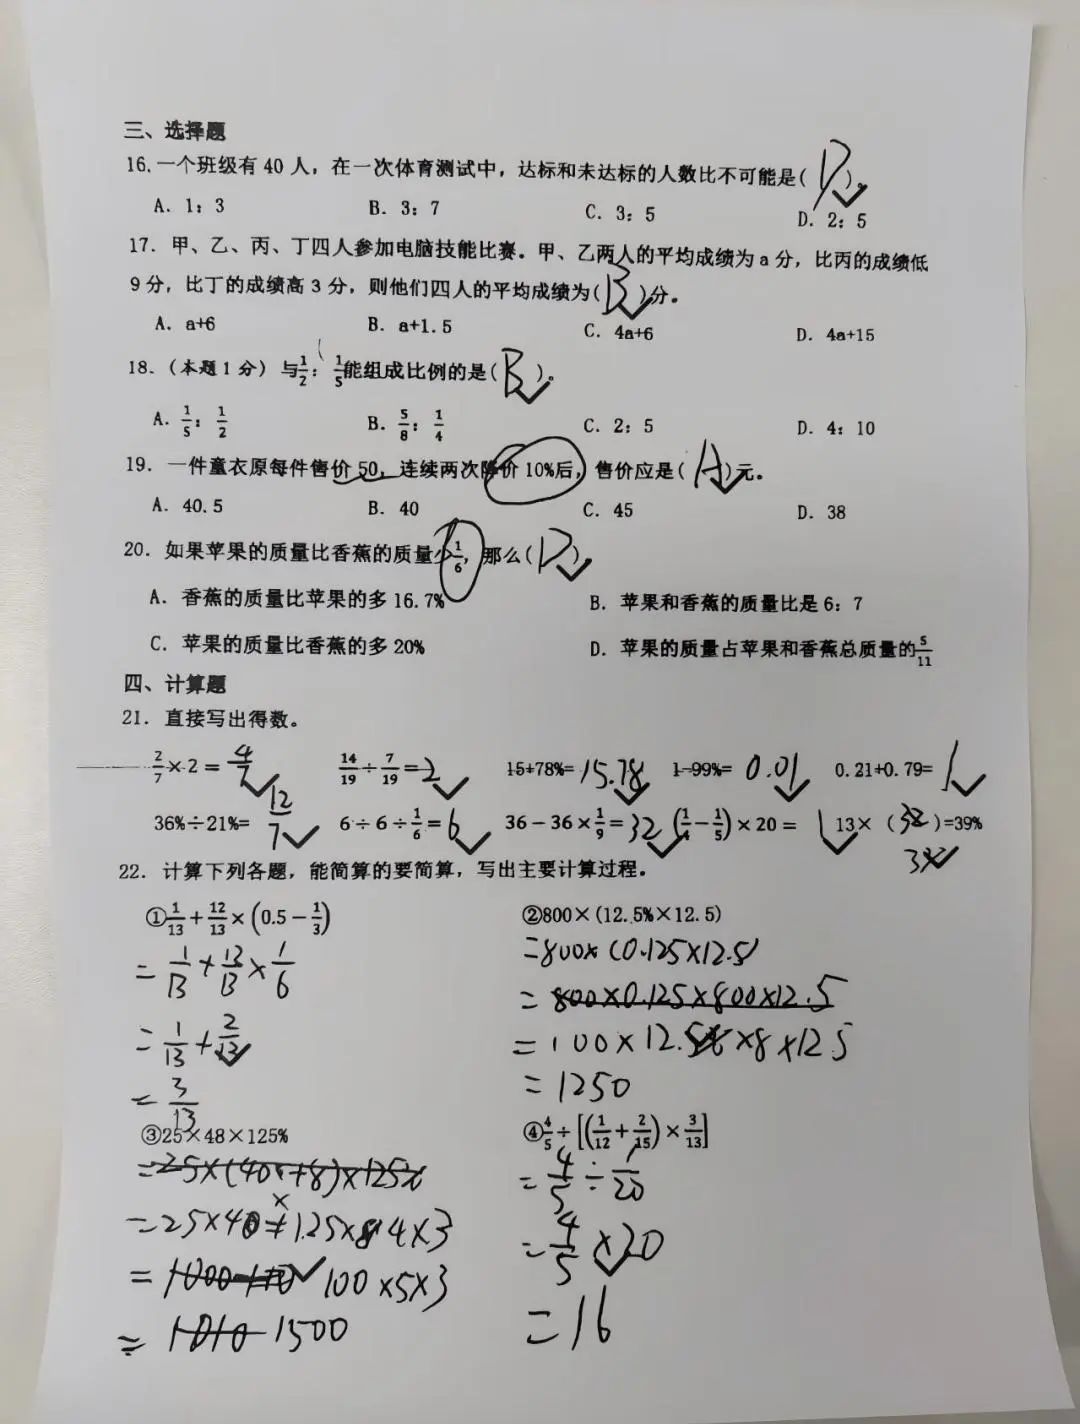 三、选择题
16. 一个班级有 40 人，在一次体育测试中，达标和未达标的人数比不可能是( D )。
A. 1：3 B. 3：7 C. 3：5 D. 2：5
17. 甲、乙、丙、丁四人参加电脑技能比赛。甲、乙两人的平均成绩为 a 分，比丙的成绩低
9 分，比丁的成绩高 3 分，则他们四人的平均成绩为( B )分。
A. a+6 B. a+1.5 C. 4a+6 D. 4a+15
18.（本题 1 分）与1/2：1/5能组成比例的是( B )。
A. 1/5：1/2 B. 5/8：1/4 C. 2：5 D. 4：10
19. 一件童衣原每件售价 50，连续两次降价 10%后，售价应是( A )元。
A. 40.5 B. 40 C. 45 D. 38
20. 如果苹果的质量比香蕉的质量少1/6，那么( D )。
A. 香蕉的质量比苹果的多 16.7% B. 苹果和香蕉的质量比是 6：7
C. 苹果的质量比香蕉的多 20% D. 苹果的质量占苹果和香蕉总质量的5/11
四、计算题
21. 直接写出得数。
2/7×2＝4/7 14/19÷7/19＝2 15+78%=15.78 1-99%=0.01 0.21+0.79=1
36%÷21%=12/7 6÷6÷1/6＝6 36－36×1/9＝32 (1/4－1/5)×20＝1 13×( )=39%
3%
22. 计算下列各题，能简算的要简算，写出主要计算过程。
①1/13+12/13×(0.5－1/3) ②800×(12.5%×12.5)
=1/13+12/13×1/6 =800×(0.125×12.5)
=800×0.125×800×12.5
=1/13+2/13 =100×12.5 ×8×12.5
=3/13 =1250
③25×48×125% ④4/5÷[(1/12+2/15)×3/13]
=25×(40+8)×125% =4/5÷1/20
=25×4×1.25×4×3 =4/5×20
= 100×5×3
= 1010 1500 =16